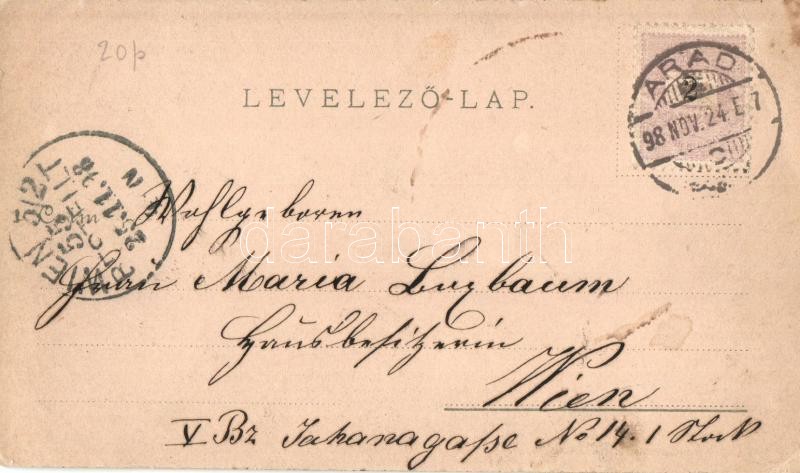 20p
LEVELEZŐ-LAP.
ARAD
2
98 NOV. 24. E. 7
WIEN 5/2 T
55
25.11.98
N
BESTELLT
Wohlgeboren
Frau Maria Buxbaum
Hausbesitzerin
Wien
V Bz Jahanagaße No 14. 1 Stock
darabanth